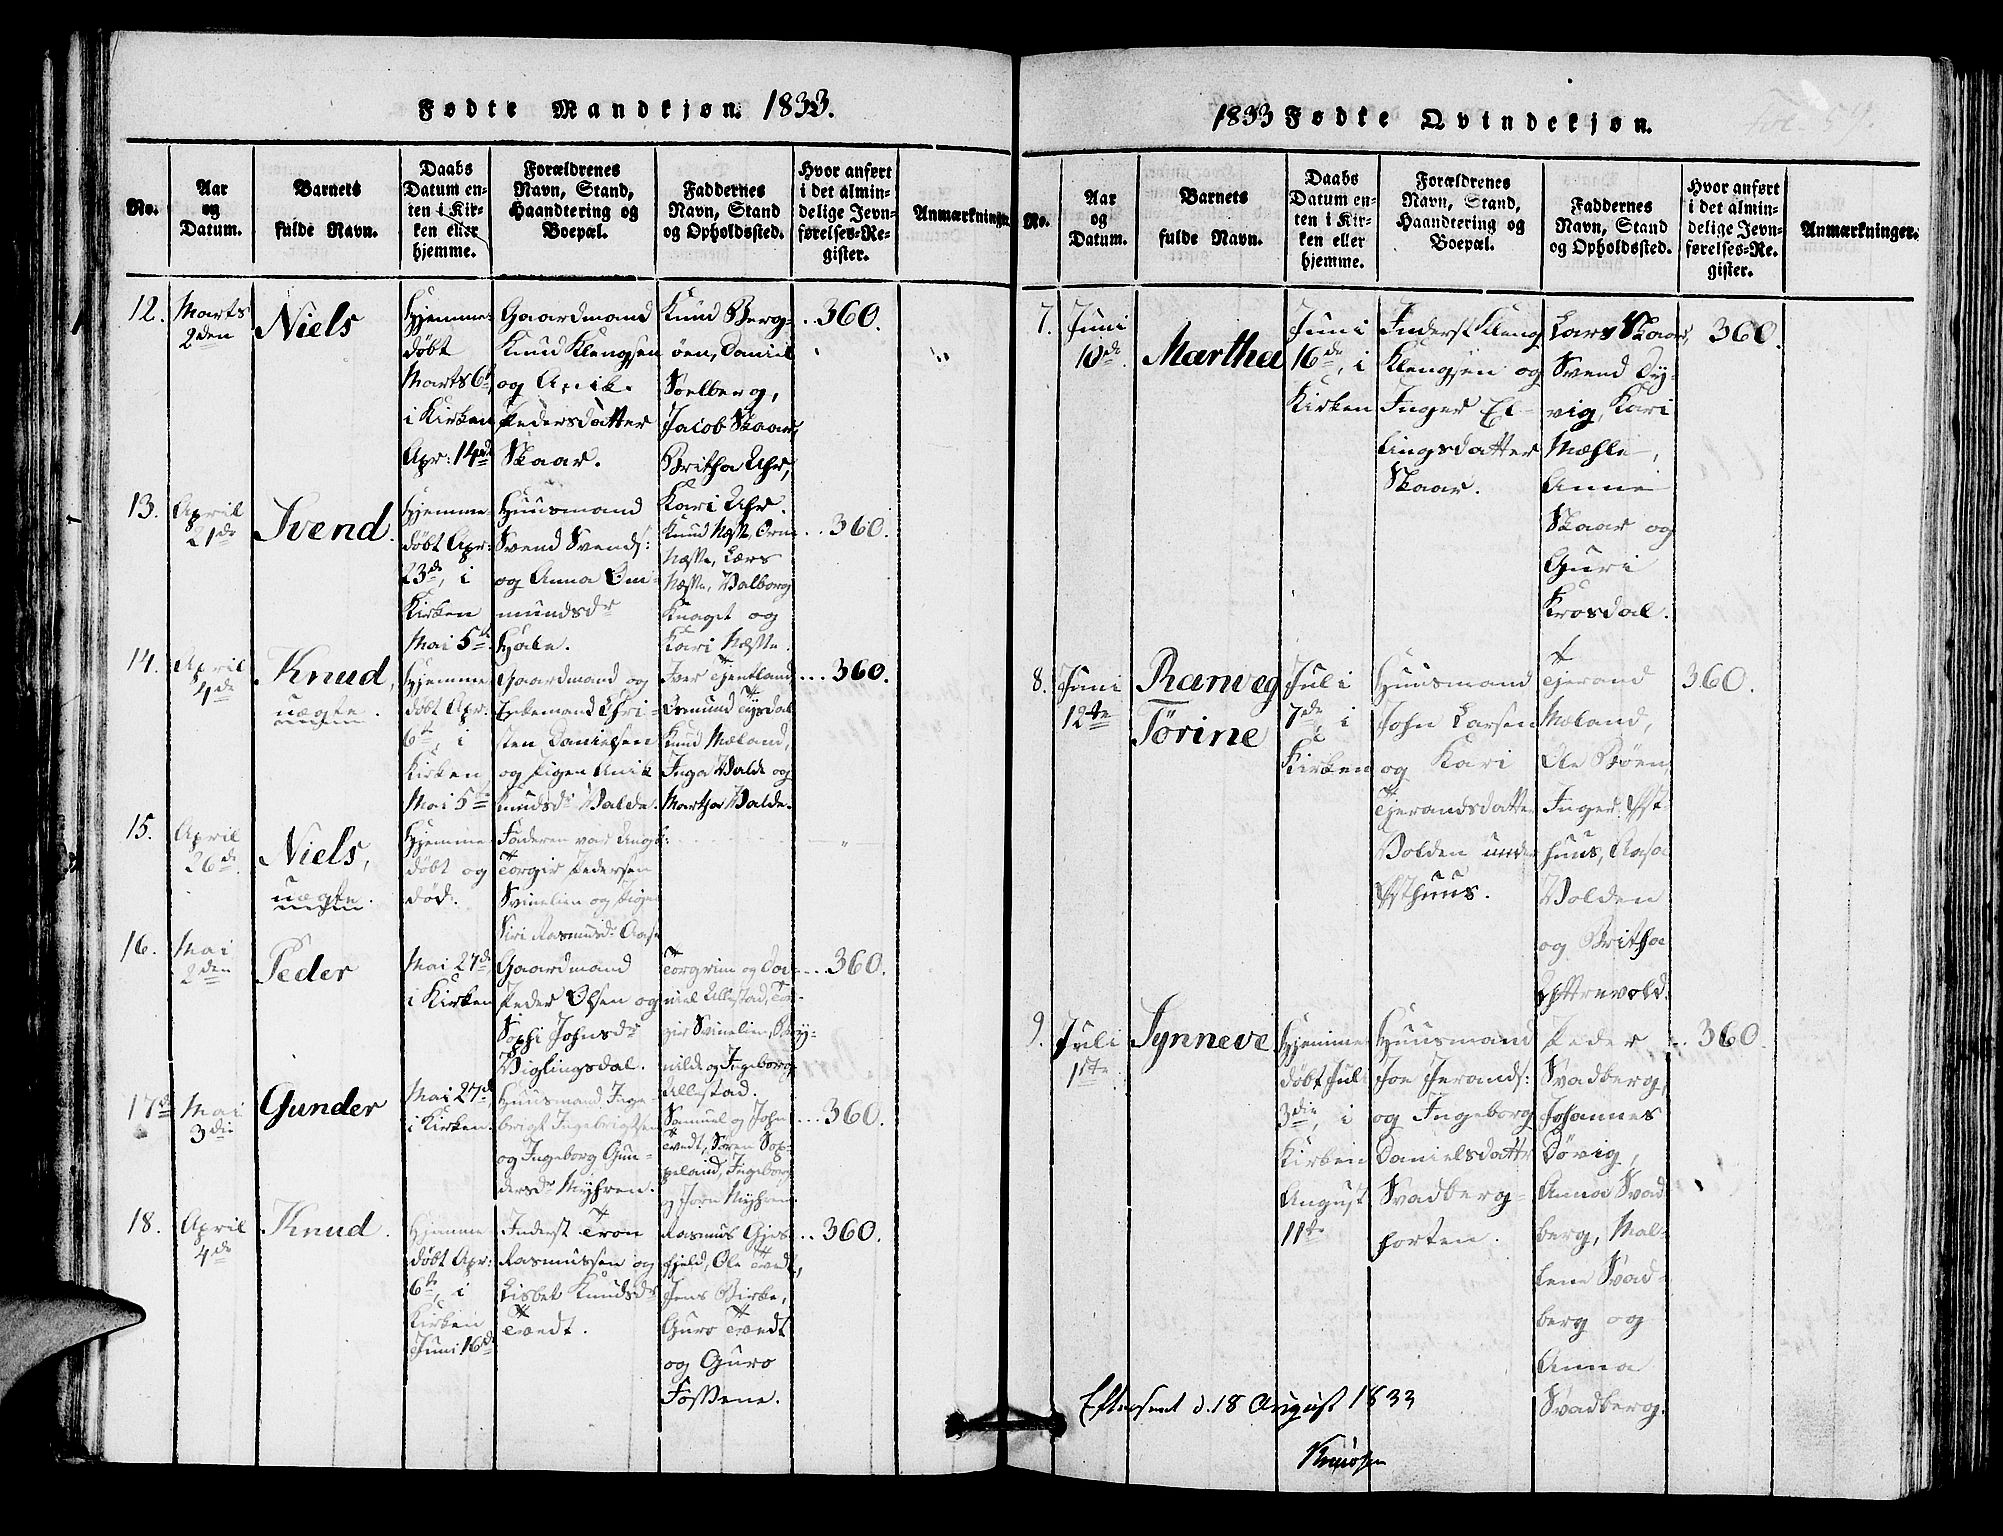 Fødte Mandkjøn. 1833.
No.
Aar
og
Datum.
Barnets
fulde Navn.
Daabs
Datum en-
ten i Kir-
ken eller
hjemme.
Forældrenes
Navn, Stand,
Haandtering og
Boepæl.
Faddernes
Navn, Stand
og Opholdssted.
Hvor anført
i det almin-
delige Jevn-
førelses-Re-
gister.
Anmærkninger.
12.
Marts
2den
Niels
Hjemme-
døbt
Marts 6te
i Kirken
Apr: 14de
Gaardmand
Knud Klengsen
og Anik.
Pedersdatter
Skaar.
Knud Berg-
øen, Daniel
Soelberg,
Jacob Skaar,
Britha Uhr,
Kari Uhr.
360.
13.
April
21de
Svend.
Hjemme
døbt Apr:
23de, i
Kirken
Mai 5te
Huusmand
Svend Svends:
og Anna Om-
mundsdr
Hjale.
Knud Næsse, Orm
Næsse, Lars
Næsse, Valborg
Knaget og
Kari Næsse.
360.
14.
April
4de
Knud,
uægte.
Hjemme
døbt Apr.
6te, i
Kirken
Mai 5te
Gaardmand og
Enkemand Chri-
sten Danielsen
og Pigen Anik
Knudsdr Valde.
Iver Tjentland
Osmund Tysdal
Knud Mæland,
Inga Valde og
Martha Valde.
360.
15.
April
26de
Niels,
uægte.
Hjemme
døbt og
død.
Faderen var Ungk:
Torgir Pedersen
Svinelien og Pigen
Siri Rasmusdr Aase
16.
Mai
2den
Peder
Mai 27de
i Kirken
Gaardmand
Peder Olsen og
Sophi Johnsdr
Viglingsdal.
Torgrim og Da-
niel Ullestad, Tor-
gir Svinelien, Bry-
nild og Ingeborg
Ullestad.
360.
17de
Mai
3die
Gunder
Mai 27de
i Kirken.
Huusmand Inge-
brigt Ingebrigtsen
og Ingeborg Gun-
dersdr Myhren.
Samuel og John
Tvedt, Søren Sop-
peland, Ingeborg
og Jørn Myhren.
360.
18.
April
4de
Knud.
Hjemme
døbt Apr:
6te, i
Kirken
Juni 16de
Inderst Tron
Rasmussen og
Lisbet Knudsdr
Tvedt.
Rasmus Gjes-
fjeld, Ole Tvedt,
Jens Birke,
Guro Tvedt
og Guro
Fossene.
360.
1833 Fødte Qvindekjøn.
No.
Aar
og
Datum.
Barnets
fulde Navn.
Daabs
Datum en-
ten i Kir-
ken eller
hjemme.
Forældrenes
Navn, Stand,
Haandtering og
Boepæl.
Faddernes
Navn, Stand
og Opholdssted.
Hvor anført
i det almin-
delige Jevn-
førelses-Re-
gister.
Anmærkninger.
7.
Juni
10de.
Martha
Juni
16de, i
Kirken
Inderst Kleng
Klengsen og
Inger El-
lingsdatter
Skaar.
Lars Skaar,
Svend Dy-
vig, Kari
Mæhle,
Anne
Skaar og
Guri
Krosdal.
360.
8.
Juni
12te
Ranveg
Torine
Juli
7de, i
Kirken
Huusmand
John Larsen
og Kari
Tjerandsdatter
Volden under
Østhuus.
Tjerand
Mæland,
Ole Bøen,
Inger Øst
huus, Aasa
Volden
og Britha
Østrevold.
360.
9.
Juli
1ste
Synneve
Hjemme
døbt Juli
3die, i
Kirken
August
11te
Huusmand
Joe Jerands:
og Ingeborg
Danielsdatter
Svadberg-
horten.
Peder
Svadberg,
Johannes
Døvig,
Anna Svad
berg, Mal-
lene Svad-
berg og
Anna
Svadberg.
360.
Efterseet d. 18 August 1833
Knudsen